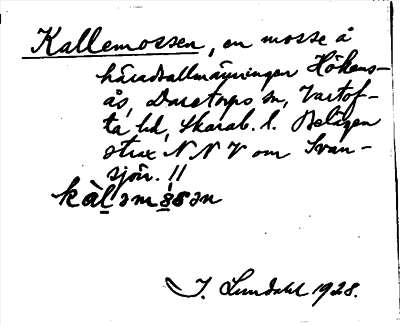 Kallemossen, en mosse å
häradsallmänningen Hökens-
ås, Daretorps sn, Vartof-
ta hd, Skarab. l. Belägen
strax N N V om Svan-
sjön. //
kàḷəmo̱sən
I. Lundahl 1928.